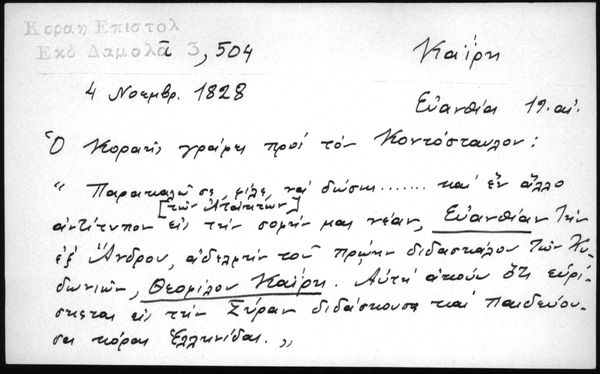 Κοραη Επιστολ
Εκδ Δαμαλα 3, 504
Καΐρη
4 Νοεμβρ. 1828
Εὐανθία 19. αἰ.
Ὁ Κοραῆς γράφει πρὸς τὸν Κοντόσταυλον:
« Παρακαλῶ σε, φίλε, νὰ δώσῃς....... καὶ ἓν ἄλλο
[τῶν Ἀτάκτων]
ἀντίτυπον εἰς τὴν σοφήν μας νέαν, Εὐανθίαν τὴν
ἐξ Ἄνδρου, ἀδελφὴν τοῦ πρώην διδασκάλου τῶν Κυ-
δωνιῶν, Θεοφίλου Καΐρη. Αὐτὴ ἀκούω ὅτι εὑρί-
σκεται εἰς τὴν Σύραν διδάσκουσα καὶ παιδεύου-
σα κόρας Ἑλληνίδας. »